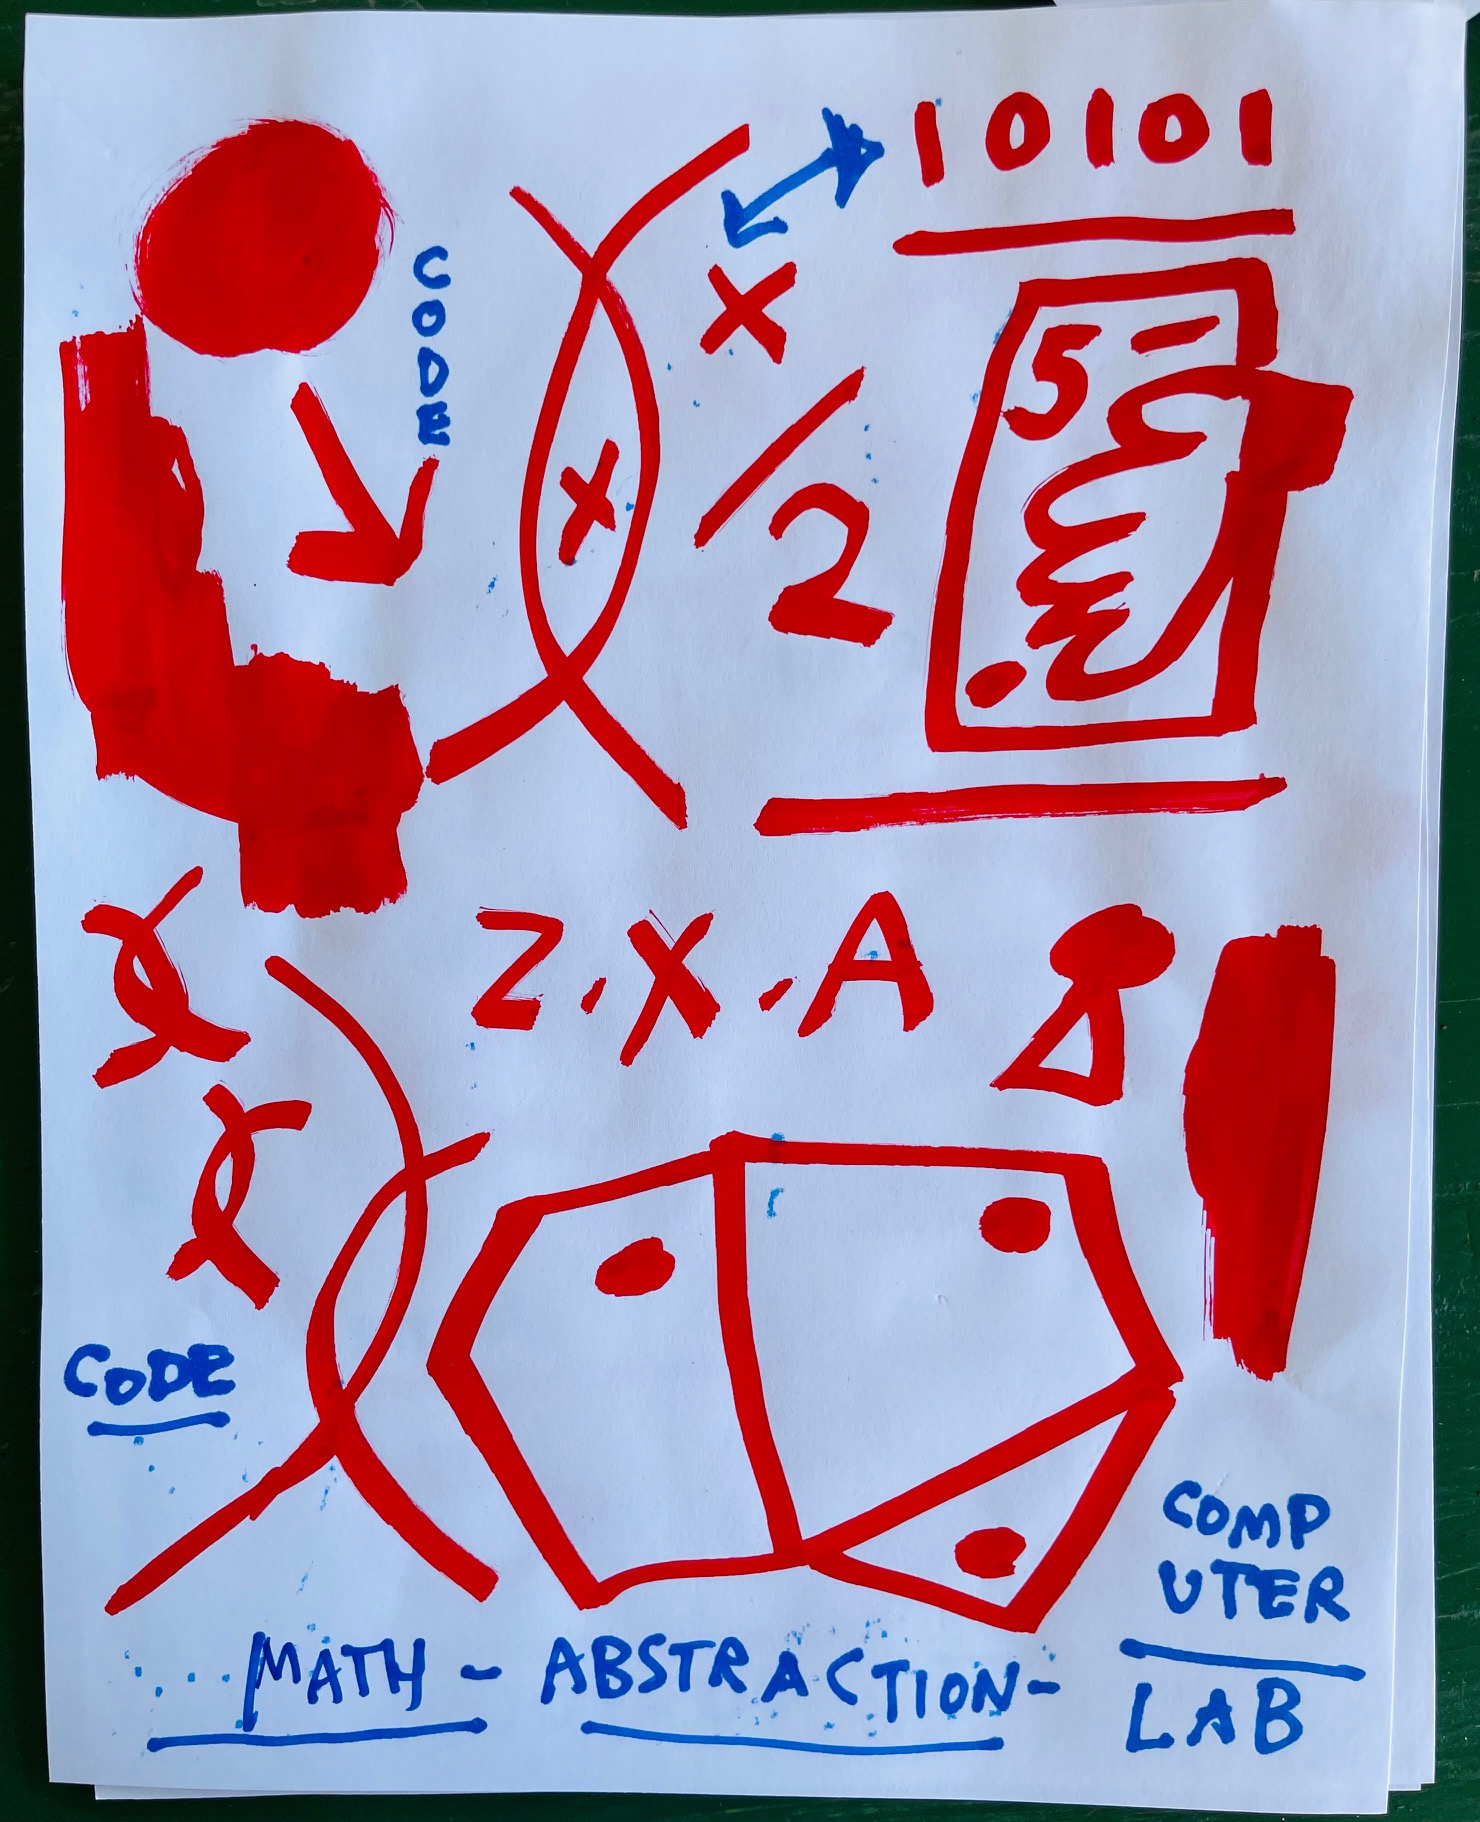 10101
CODE
X
X
/2
5-
Z.X.A
CODE
COMP
UTER
LAB
MATH - ABSTRACTION-